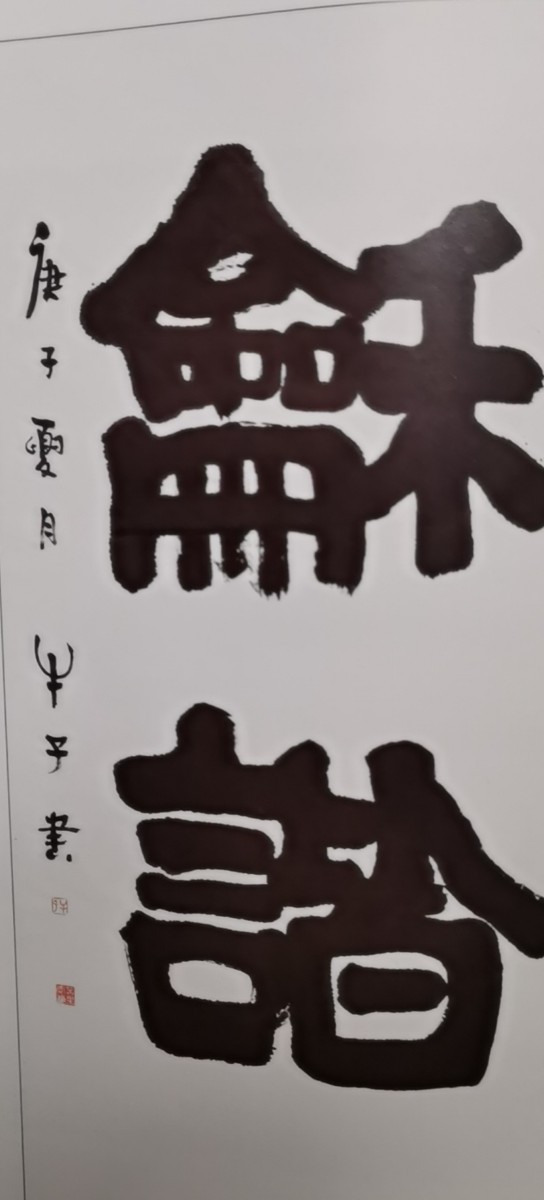 龢諧
庚子夏月 牛子書